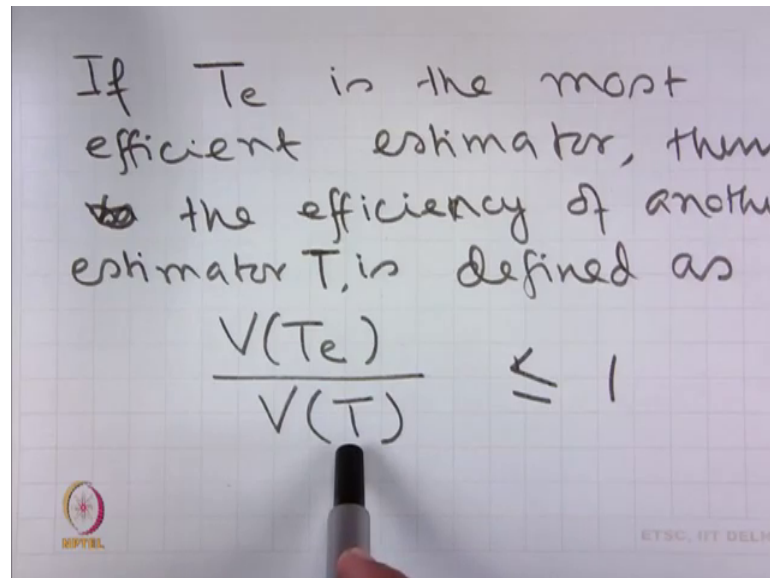 If Te is the most
efficient estimator, then
the efficiency of anothe
estimator T, is defined as
V(Te)
V(T)
≤ 1
NPTEL
ETSC, IIT DELH